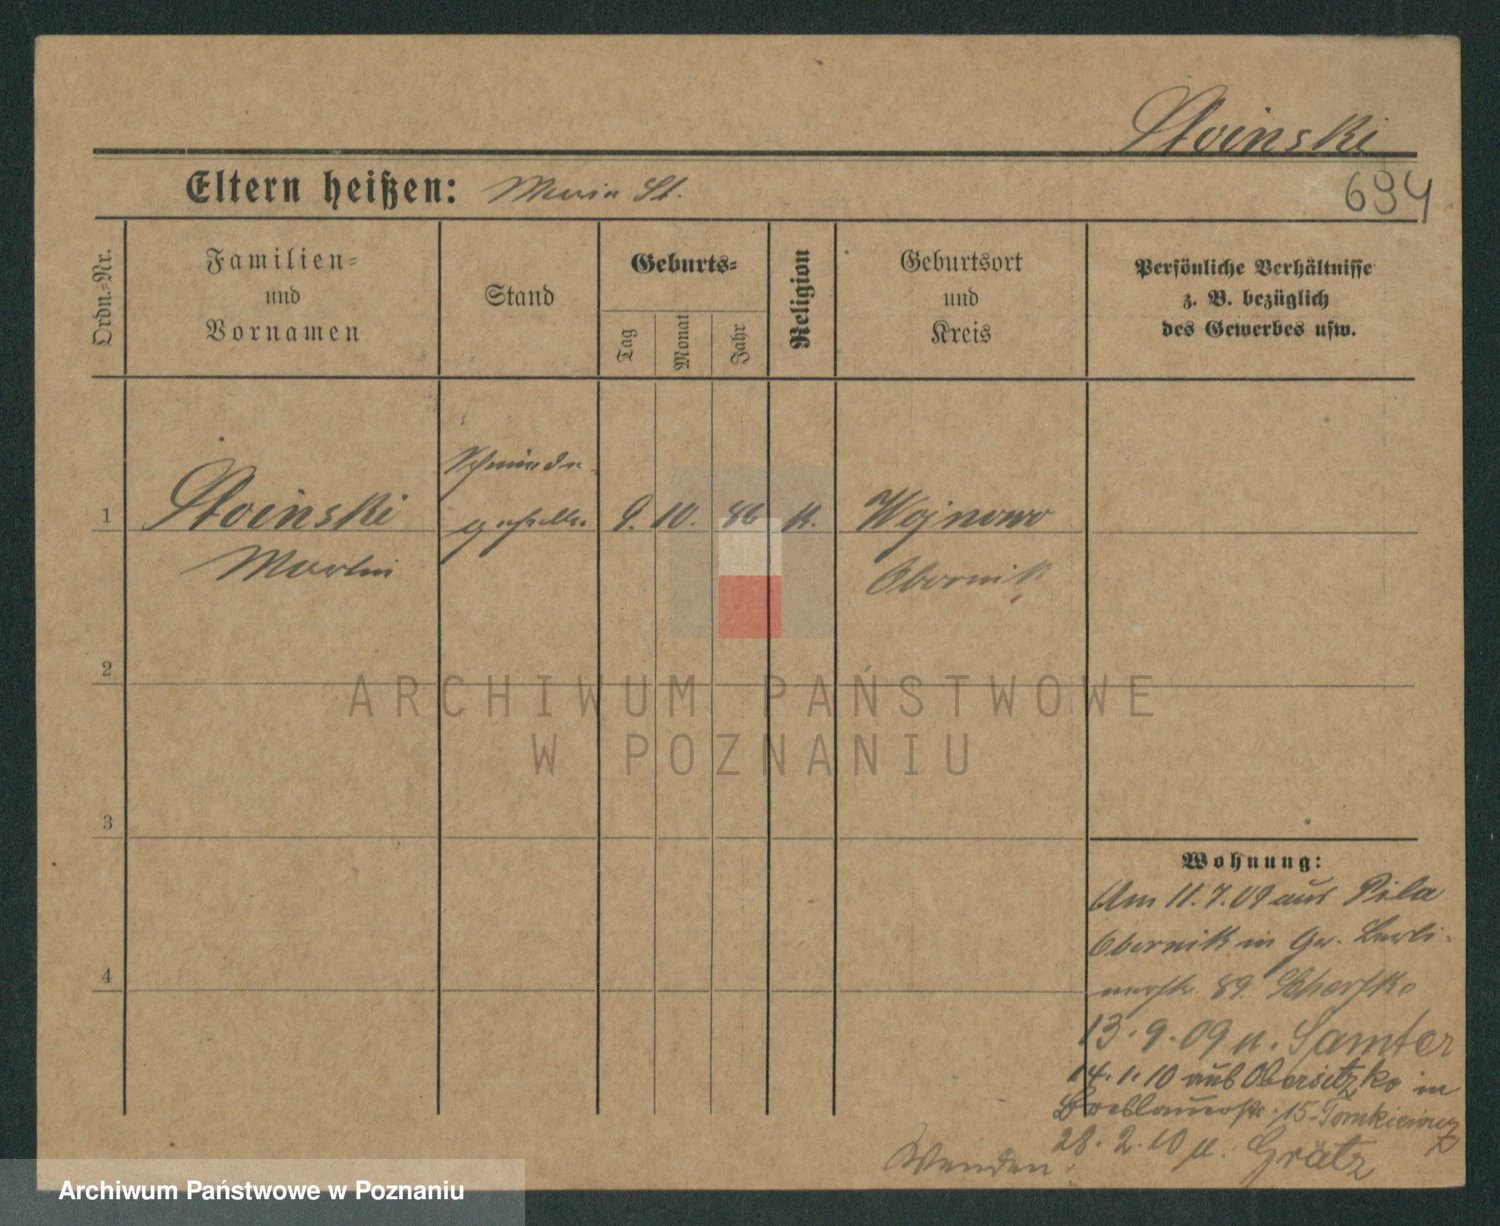 Stoinski
Eltern heißen: Maria St.
694
Ordn.-Nr.
Familien-
und
Vornamen
Stand
Geburts-
Tag
Monat
Jahr
Religion
Geburtsort
und
Kreis
Persönliche Verhältnisse
z. B. bezüglich
des Gewerbes usw.
1
Stoinski
Martin
Schmiede-
geselle.
9. 10. 86 k.
Wojnowo
Obornik
2
3
4
ARCHIWUM PAŃSTWOWE
W POZNANIU
Wohnung:
Am 11.7.09 aus Pila
Obornik in Gr. Berli-
nerstr. 89.
13.9.09 n. Samter
14.1.10 aus Obersitzko in
Breslauerstr. 15 Tomkiewicz
28.2.10 n. Grätz
Wenden!
Archiwum Państwowe w Poznaniu